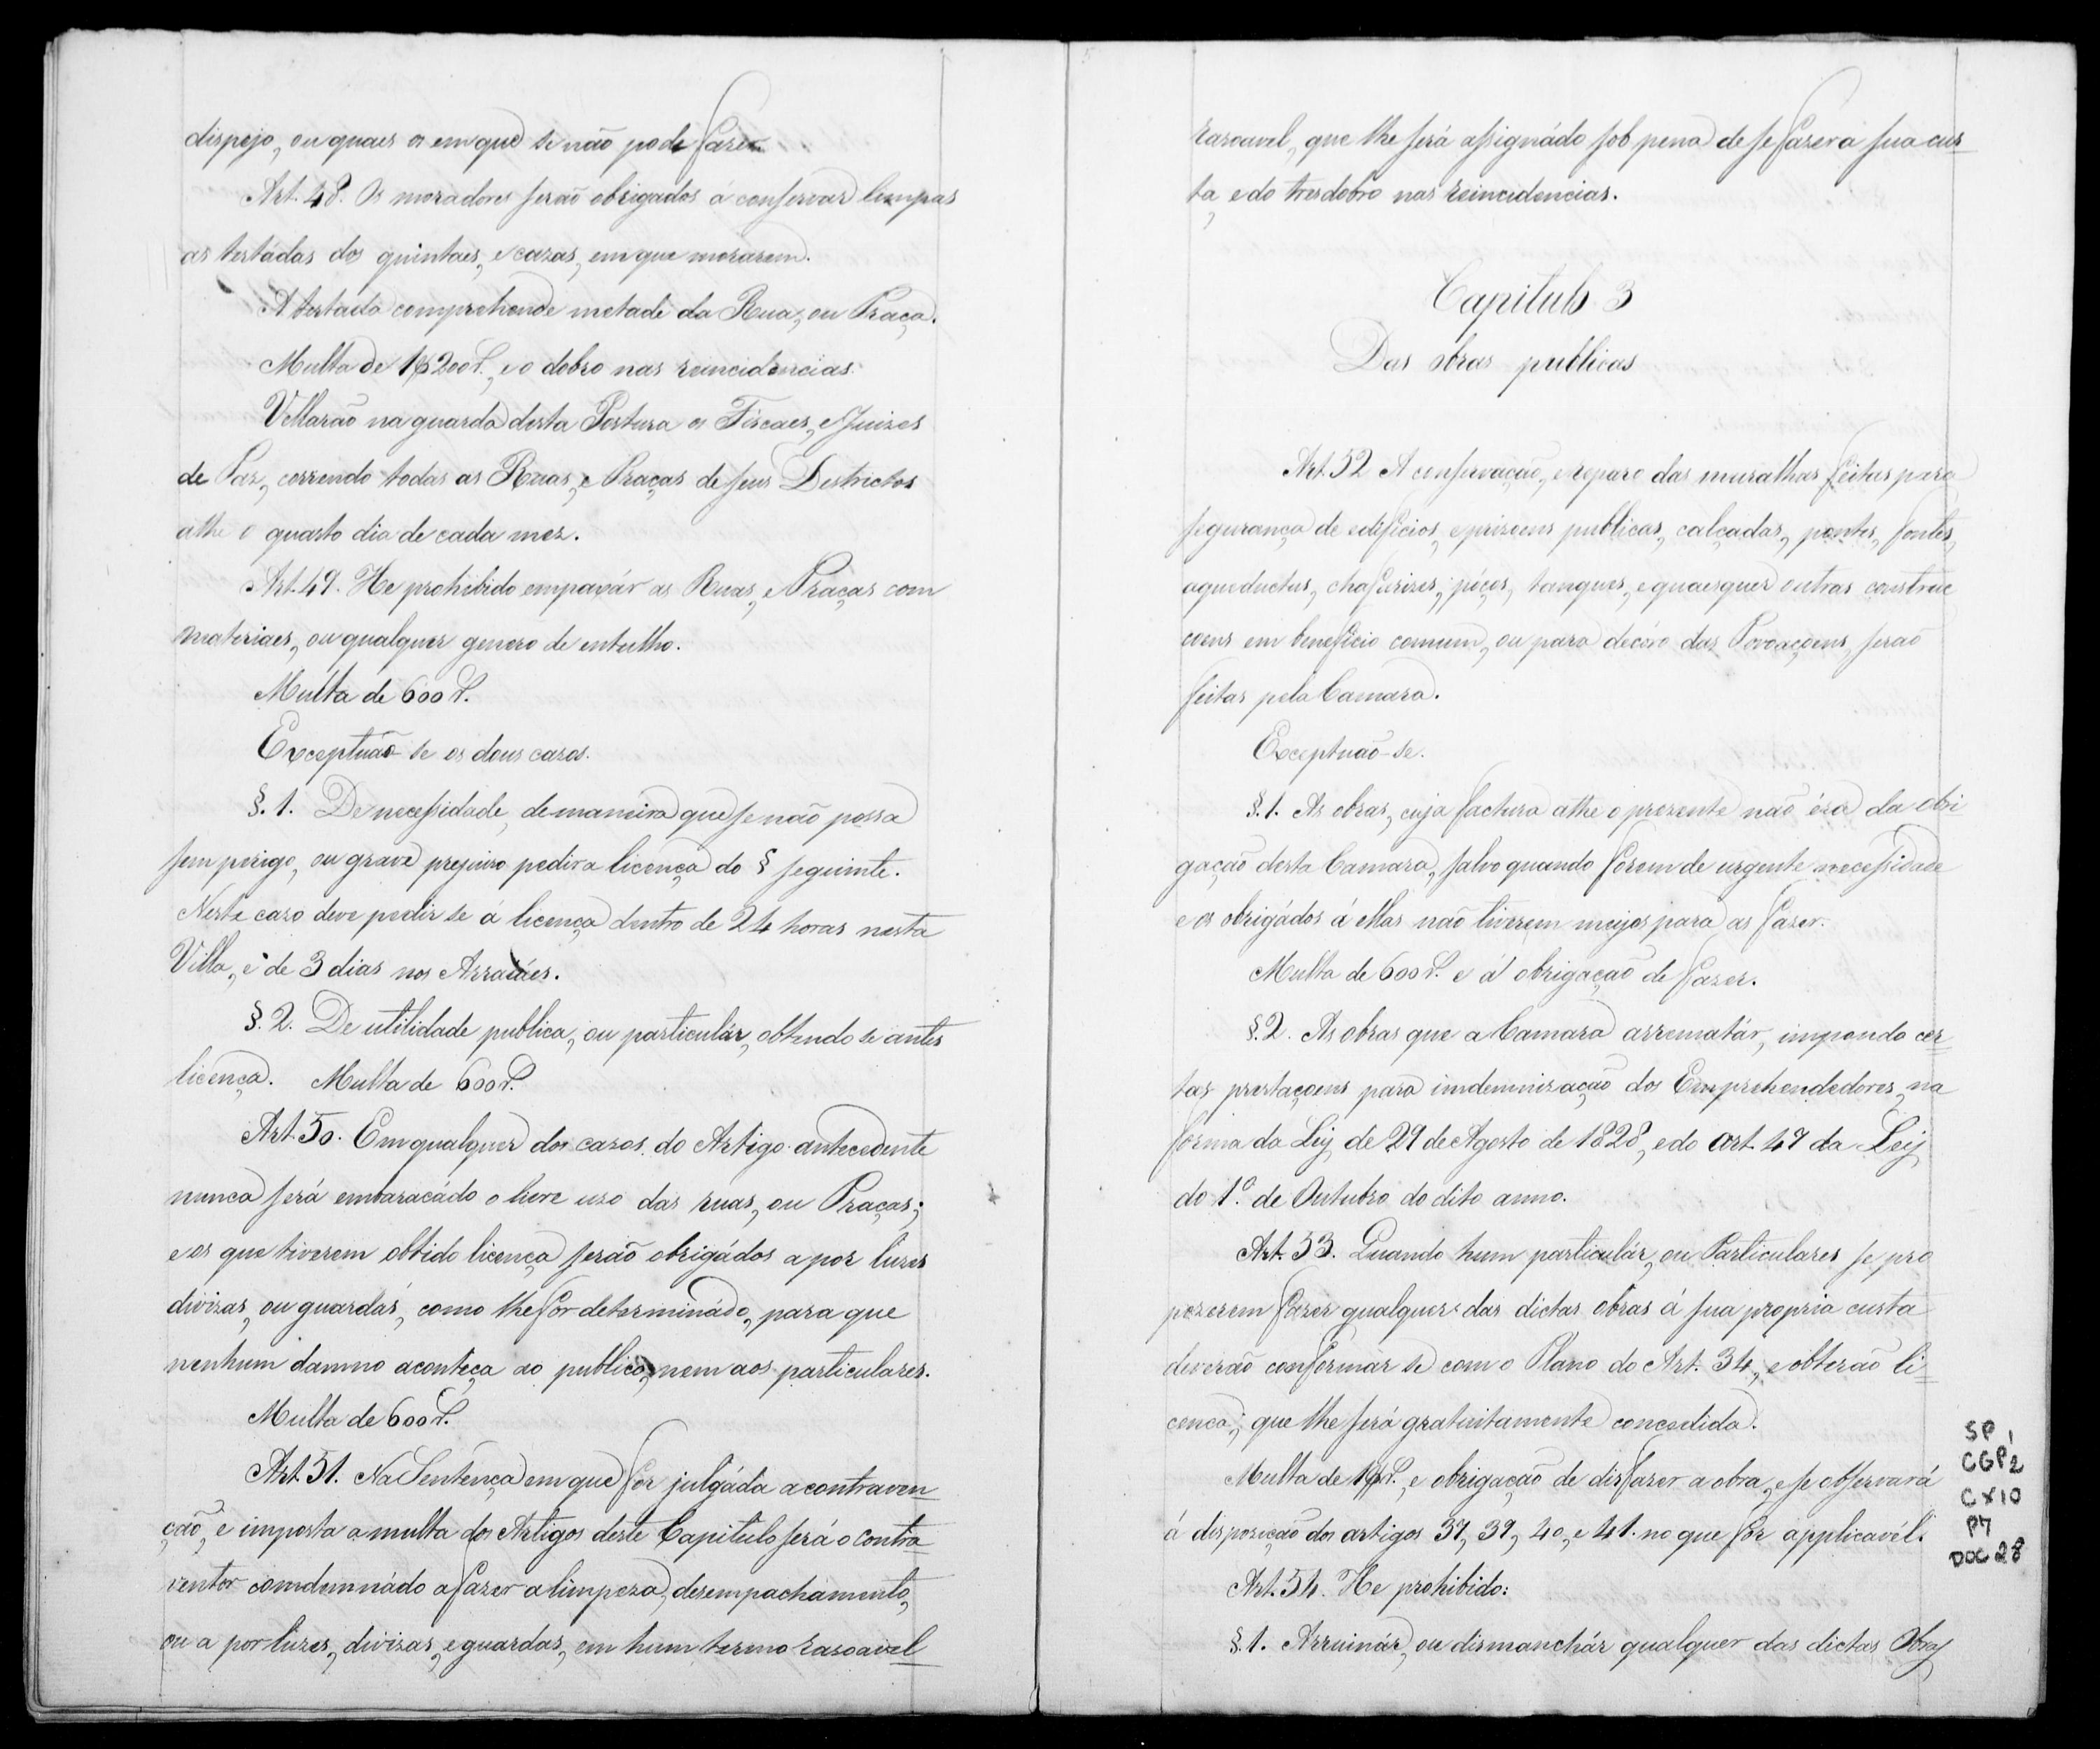 dispejo, ou quaes os em que se não pode fazer
Art. 48. Os moradores serão obrigados á conservar limpas
as testádas dos quintaes, e cazas, em que morarem.
A testada comprehende metade da Rua, ou Praça.
Multa de 1$200 r., e o dobro nas reincidencias.
Vellarão na guarda desta Postura os Fiscaes, e Juizes
de Paz, correndo todas as Ruas, e Praças de seus Destrictos
athe o quarto dia de cada mez.
Art. 49. He prohibido empaxár as Ruas, e Praças com
materiaes, ou qualquer genero de entulho.
Multa de 600 r.
Exceptuão-se os dous cazos.
§. 1. De necessidade, de maneira que se não possa
sem perigo, ou grave prejuizo pedir a licença do § seguinte.
Neste cazo deve pedir se á licença dentro de 24 horas nesta
Villa, e de 3 dias nos Arraiáes.
§. 2. De utilidade publica, ou particulár, obtendo se antes
licença. Multa de 600 r.
Art. 50. Em qualquer dos cazos do Artigo antecedente
nunca será embaraçádo o livre uzo das ruas, ou Praças;
e os que tiverem obtido licença serão obrigádos a por luzes
divizas, ou guardas, como lhe for determinádo, para que
nenhum damno aconteça ao publico, nem aos particulares.
Multa de 600 r.
Art. 51. Na Sentença em que for julgáda a contraven=
ção, e imposta a multa dos Artigos deste Capitulo será o contra=
ventor comdemnádo a fazer a limpeza, desempachamento,
ou a por luzes, divizas, e guardas, em hum termo razoavel
razoavel, que lhe será assignádo sob pena de se fazer a sua cus=
ta, e do tresdobro nas reincidencias.
Capitulo 3
Das obras publicas
Art. 52 A conservação, e reparo das muralhas feitas para
segurança de edificios, e prizoens publicas, calçadas, pontes, fontes,
aqueductus, chafarizes, póços, tanques, e quaesquer outras construc
coens em beneficio comum, ou para decóro das Povoaçoens, serão
feitas pela Camara.
Exceptuão-se.
§. 1. As obras, cuja factura athe o prezente não éra da obri
gação desta Camara, salvo quando forem de urgente necessidade
e os obrigádos á ellas não tiverem meijos para as fazer.
Multa de 600 r. e á obrigação de fazer.
§. 2. As obras que a Camara arrematár, impondo cer=
tas prestaçoens para imdemnização dos Emprehendedores, na
fórma da Ley de 29 de Agosto de 1828, e do art. 47 da Ley
do 1.º de Outubro do dito anno.
Art. 53. Quando hum particulár, ou Particulares se pro
pozerem fazer qualquer das dictas obras á sua propria custa
deverão confórmar se com o Plano do Art. 34, e obterão li=
cença; que lhe será gratuitamente concedida.
Multa de 1$ r., e obrigação de disfazer a obra, e se observará
á dispozição dos artigos 37, 39, 40, e 41. no que fôr applicavél.
Art. 54. He prohibido:
§. 1. Arruinár, ou dismanchár qualquer das dictas Obras
SP 1
CGP2
CX10
P7
DOC 28